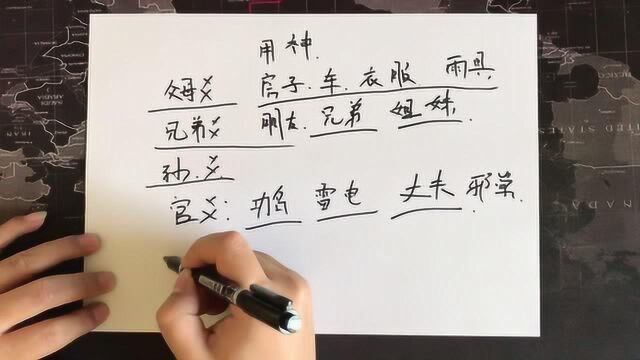 用神.
父母爻 房子.车.衣服 雨具
兄弟爻 朋友.兄弟 姐妹.
孙.爻
官爻: 功名 雷电 丈夫 邪祟.
STATES
NADA